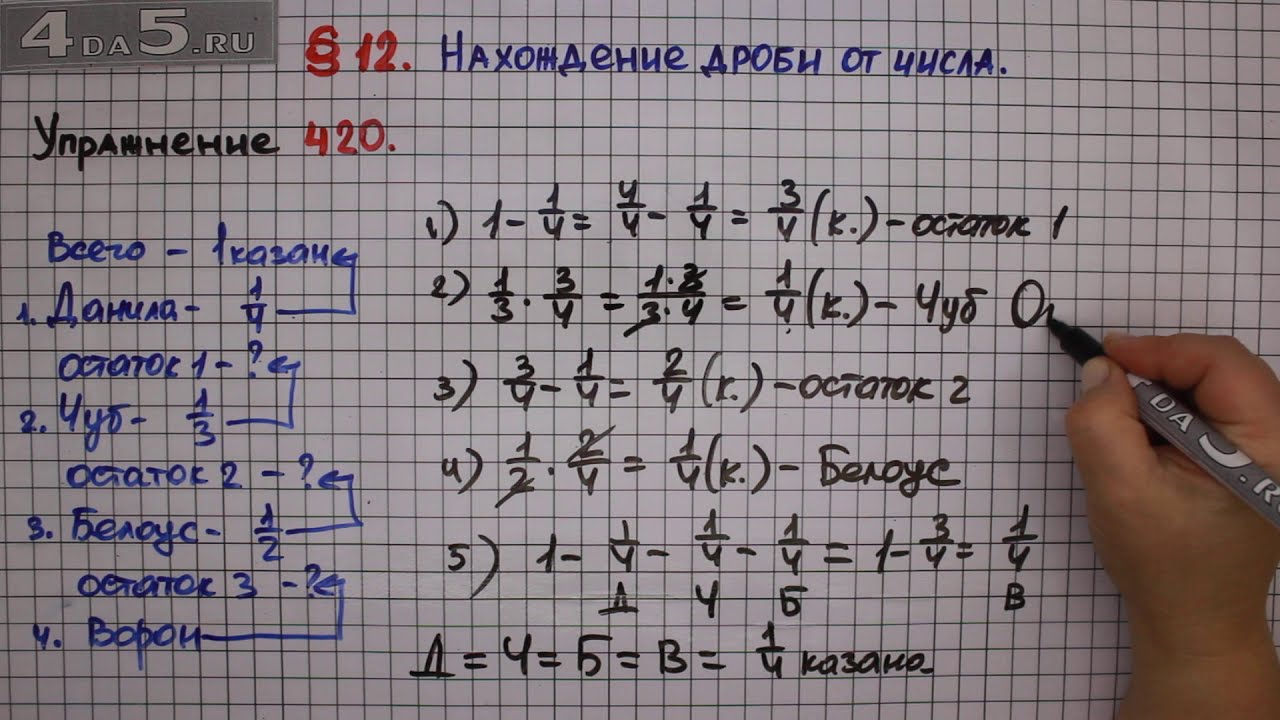 4DA5.RU
§ 12. Нахождение дроби от числа.
Упражнение 420.
Всего – 1 казан
1. Данила – 1/4
остаток 1 – ?
2. Чуб – 1/3
остаток 2 – ?
3. Белоус – 1/2
остаток 3 – ?
4. Ворон
1) 1 - 1/4 = 4/4 - 1/4 = 3/4 (к.) – остаток 1
2) 1/3 · 3/4 = 1·3/3·4 = 1/4 (к.) – Чуб
3) 3/4 - 1/4 = 2/4 (к.) – остаток 2
4) 1/2 · 2/4 = 1/4 (к.) – Белоус
5) 1 - 1/4 - 1/4 - 1/4 = 1 - 3/4 = 1/4
Д Ч Б В
Д = Ч = Б = В = 1/4 казана